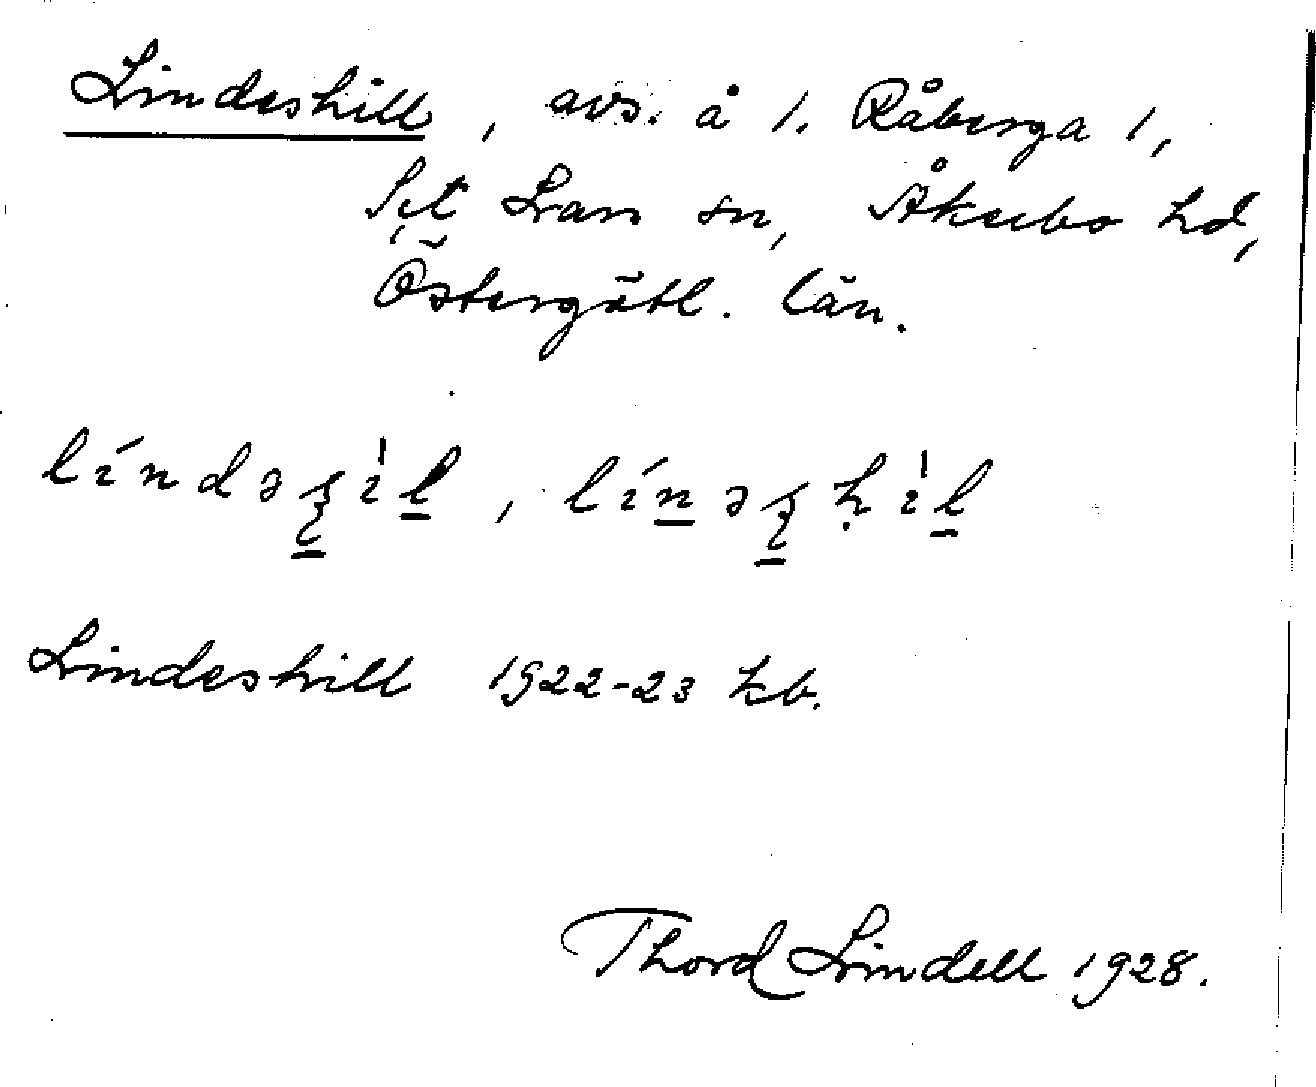 Lindeshill, avs. å 1. Råberga 1,
S:t Lars sn, Åkerbo hd,
Östergötl. län.
Lindeshill 1922-23 kb.
Thord Lindell 1928.